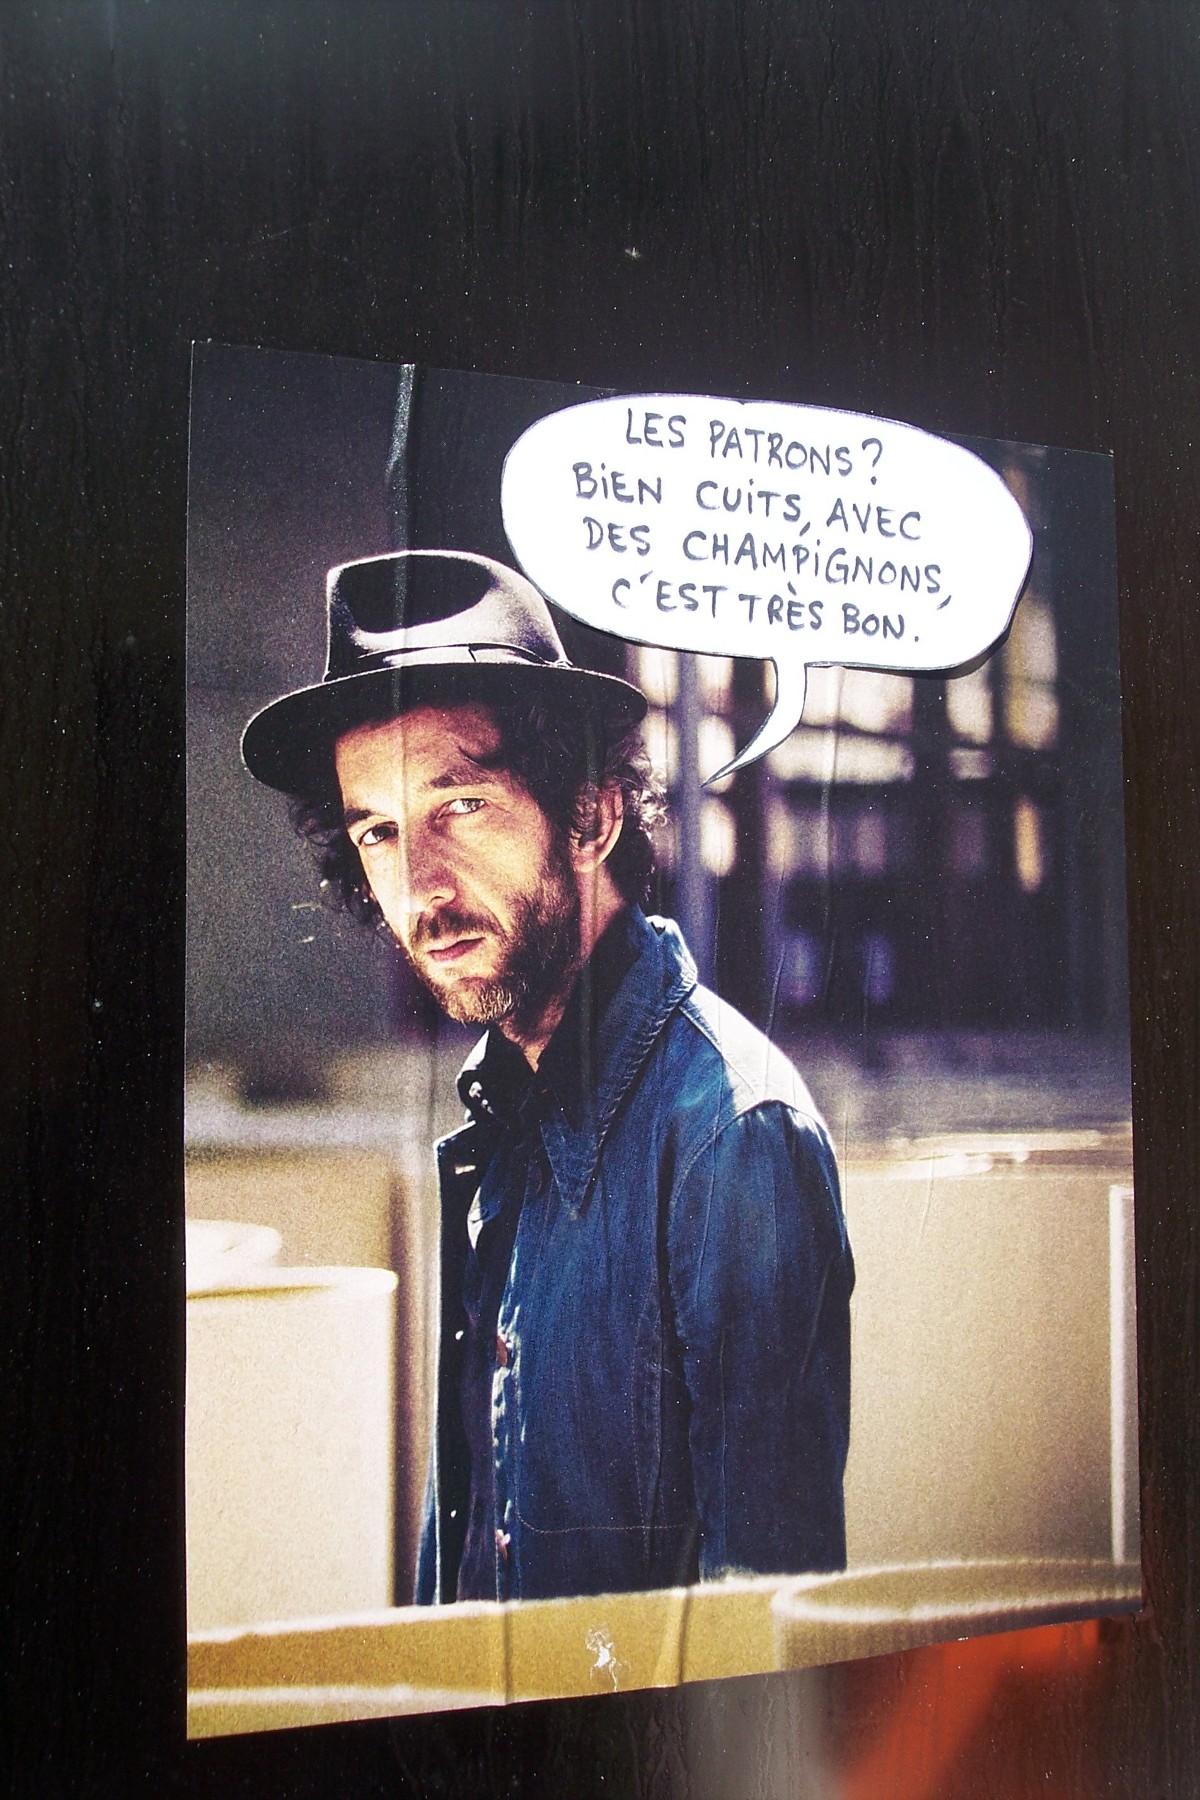 LES PATRONS?
BiEN CUiTS, AVEC
DES CHAMPiGNONS,
C'EST TRÈS BON.